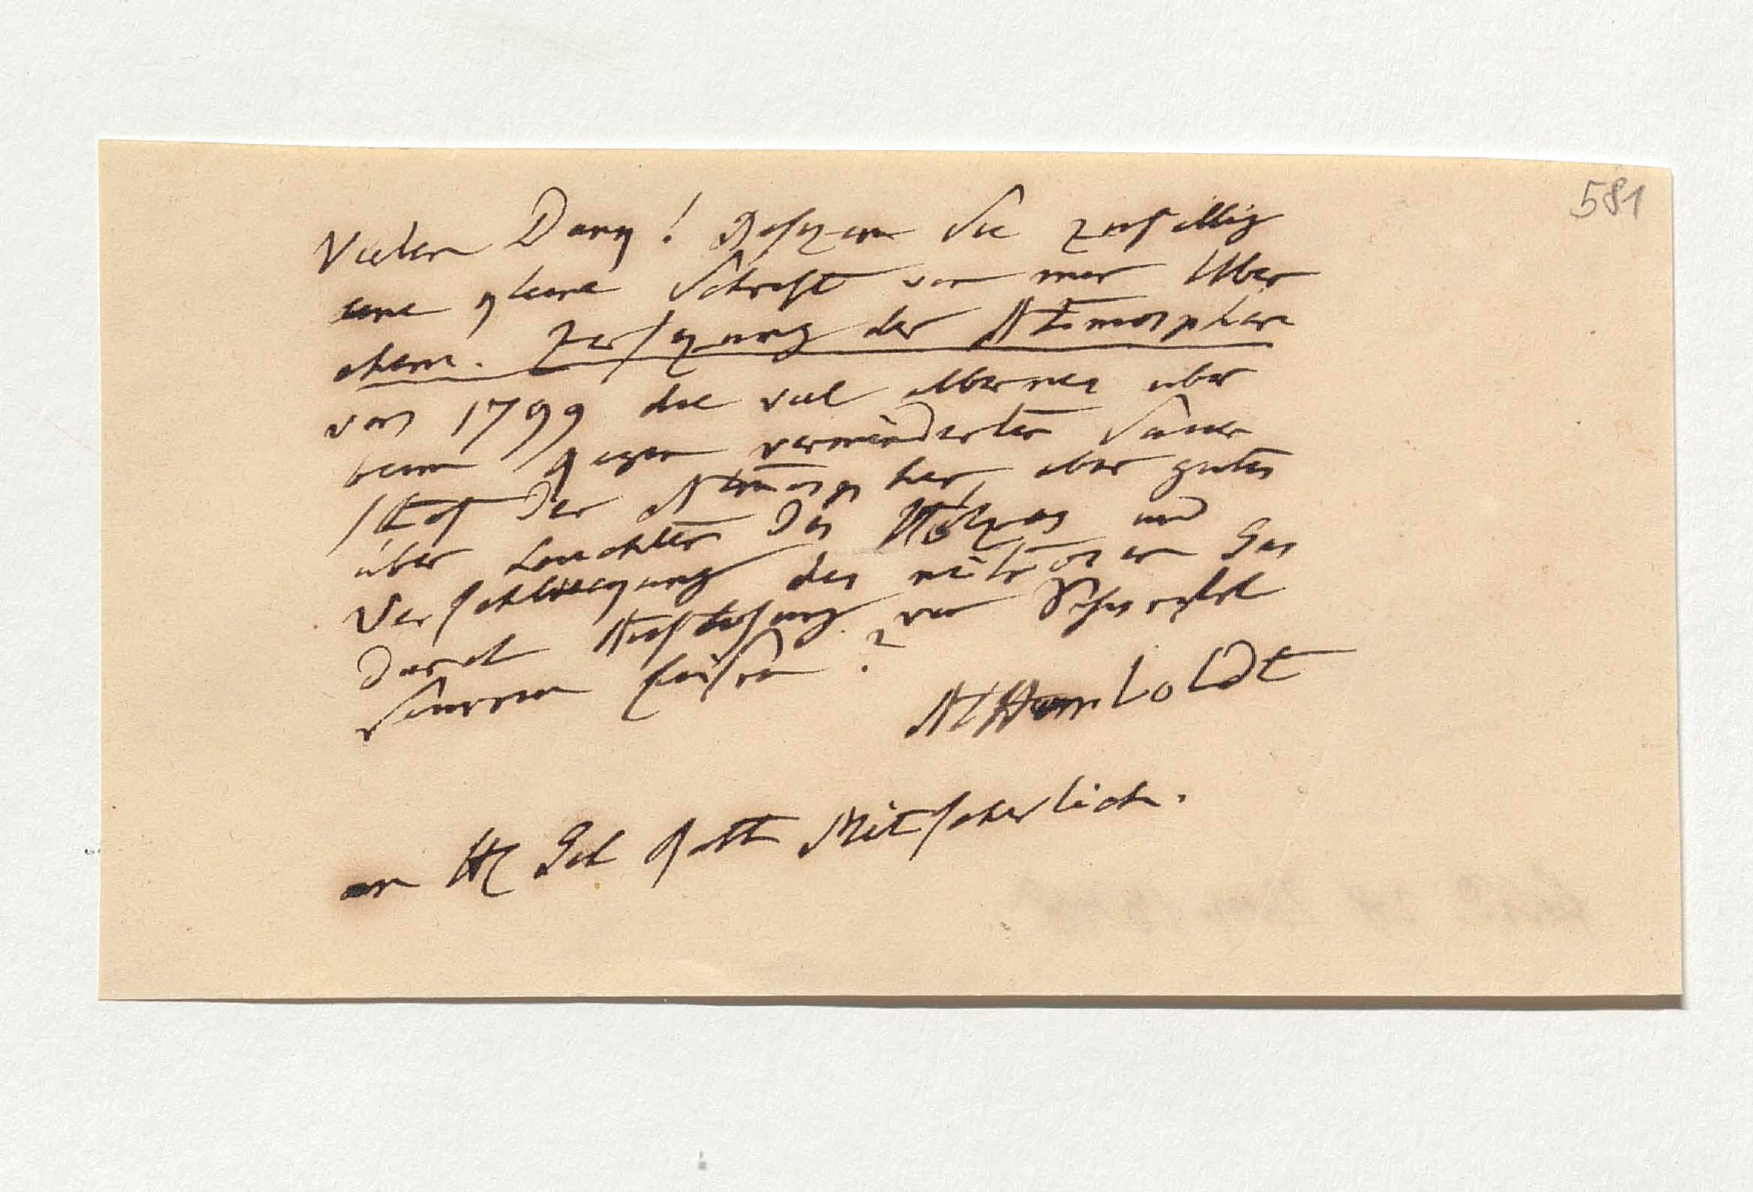 581
Vielen Dank! Besizen Sie zufällig
eine kleine Schrift von mir Über
chem. Zersezung der Atmosphere
von 1799 die viel albernes über
beim Regen verminderten Sauer
stof der Atmospher, aber gutes
über Leuchten des Holzes und
Verschluckung des nitrosen Gas
durch Auflösung von Schwefel
saurem Eisen?
AlHumboldt
an H Geh Rath Mitscherlich.